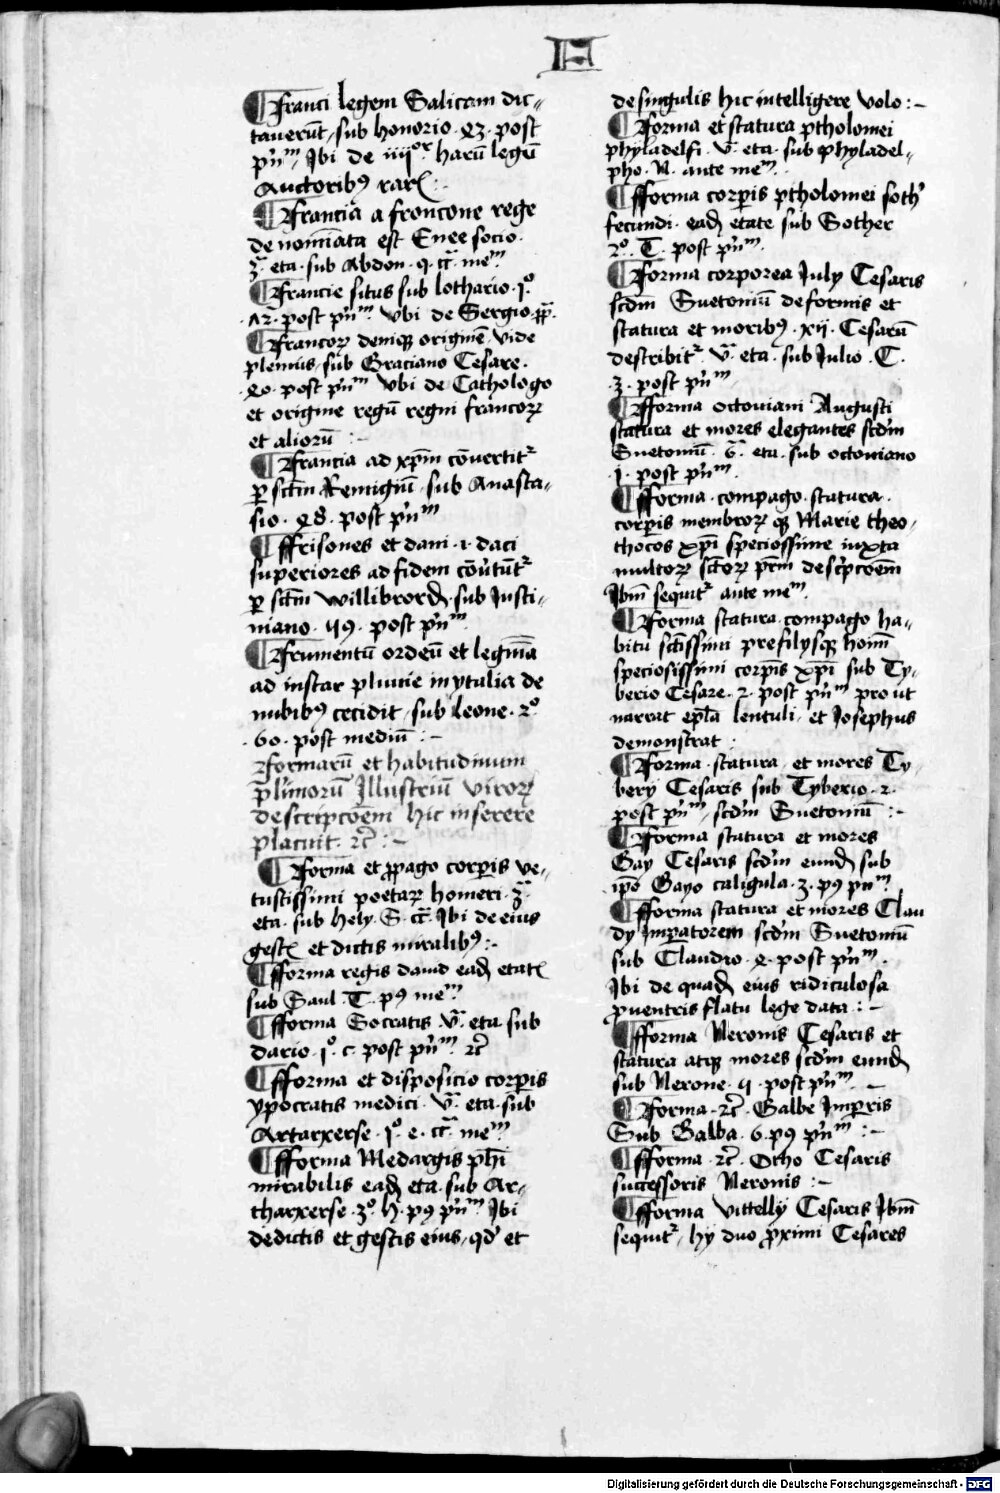 F
¶ Franci legem Salicam dic-
tauerūt, sub honorio · 43 · post
pn̄m, Ibi de iiijor harū legū
Auctoribꝫ
¶ Francia a francone rege
denomīata est Enee socio ·
3ª eta · sub Abdon · q · cc̄ · mem
¶ Francie situs sub lothario · Io
· 12 · post pn̄m vbi de Sergio pp̄ ·
¶ Francoꝝ deniqꝫ originē, vide
plenius, sub Graciano Cesare ·
· 40 · post pn̄m vbi de Cathologo
et origine regū regni francoꝝ
et alioꝝ :
¶ Francia ad xpm̄ cōuertitr
ꝑ sctm̄ Remigiū, sub Anasta-
sio · 48 · post pn̄m
¶ ffrisones et dani · i · daci
superiores ad fidem cōuertūtr
ꝑ sctm̄ willibrordū, sub Justi-
niano · 49 · post pn̄m
¶ Frumentū ordeū et legmīa
ad instar pluuie in ytalia de
nubibꝫ cecidit, sub leone · 2o
· 60 · post mediū : -
Formarū et habitudinum
pl'imorū Illustriū viroꝝ
descripcoēm hic inserere
placuit · ꝛc̄ : -
¶ Forma et ꝓpago corpis ve-
tustissimi poetaꝝ homeri · 3ª
eta · sub hely · S · cc̄ · Ibi de eius
gestꝭ et dictis mirabilibꝫ : -
¶ fforma regis dauid ead̄ etatꝭ
sub Saul · T · pꝫ mem
¶ fforma Socratis · vª · eta sub
dario · Io · c · post pn̄m · ꝛc̄
¶ fforma et disposicio corpis
ypocratis medici · vª · eta · sub
Artarxerse · Io · e · cc̄ · mem
¶ fforma Medargis phī
mirabilis ead̄ eta · sub Ar-
tharxerse · 3o · h · pꝫ pn̄m Ibi
de dictis et gestis eius, qd' et
de singulis hic intelligere volo : -
¶ Forma et statura ptholomei
phyladelfi · vª · eta · sub phyladel-
pho · N · ante mem ·
¶ fforma corpis ptholomei soth'
secundi · ead̄ etate sub Sother
2o · T · post pn̄m ·
¶ Forma corporea July Cesaris
scdm̄ Suetoniū de formis et
statura et moribꝫ · xij · Cesarū
describitr · vª · eta · sub Julio · C ·
· 3 · post pn̄m
¶ fforma octouiani Augusti
statura et mores elegantes scdm̄
Suetoniū · 6ª · eta · sub octouiano
· I · post pn̄m ·
¶ fforma · compago · statura ·
corpis membroꝝ qꝫ Marie theo-
thocos xpī speciossime iuxta
multoꝝ sctoꝝ prm̄ descripcoēm
Ibm̄ sequitr ante mem
¶ Forma statura compago ha-
bitu sctissimi prefilysqꝫ homī
speciosissimi corpis xpī sub Ty-
berio Cesare · 2 · post pn̄m prout
narrat epl̄a lentuli, et Josephus
demonstrat :
¶ Forma · statura · et mores Ty-
bery Cesaris sub Tyberio · 2 ·
post pn̄m, scdm̄ Suetoniū : -
¶ Forma statura et mores
Gay Cesaris scdm̄ eund̄ sub
ipo Gayo caligula · 3 · pꝫ pn̄m
¶ fforma statura et mores Clau
dy Imperatorem scdm̄ Suetoniū
sub Claudio · 4 · post pn̄m ·
Ibi de quad̄ eius ridiculosa
ꝓ ventris flatu lege data : -
¶ fforma Neronis Cesaris et
statura atqꝫ mores scdm̄ eund̄
sub Nerone · 4 · post pn̄m · -
¶ Forma · ꝛc̄ · Galbe Imperis
Sub Galba · 6 · pꝫ pn̄m : -
¶ fforma · ꝛc̄ · Otho Cesaris
successoris Neronis : -
¶ fforma vittelly Cesaris Ibm̄
sequitr, hy duo ꝓximi Cesares
Digitalisierung gefördert durch die Deutsche Forschungsgemeinschaft - DFG